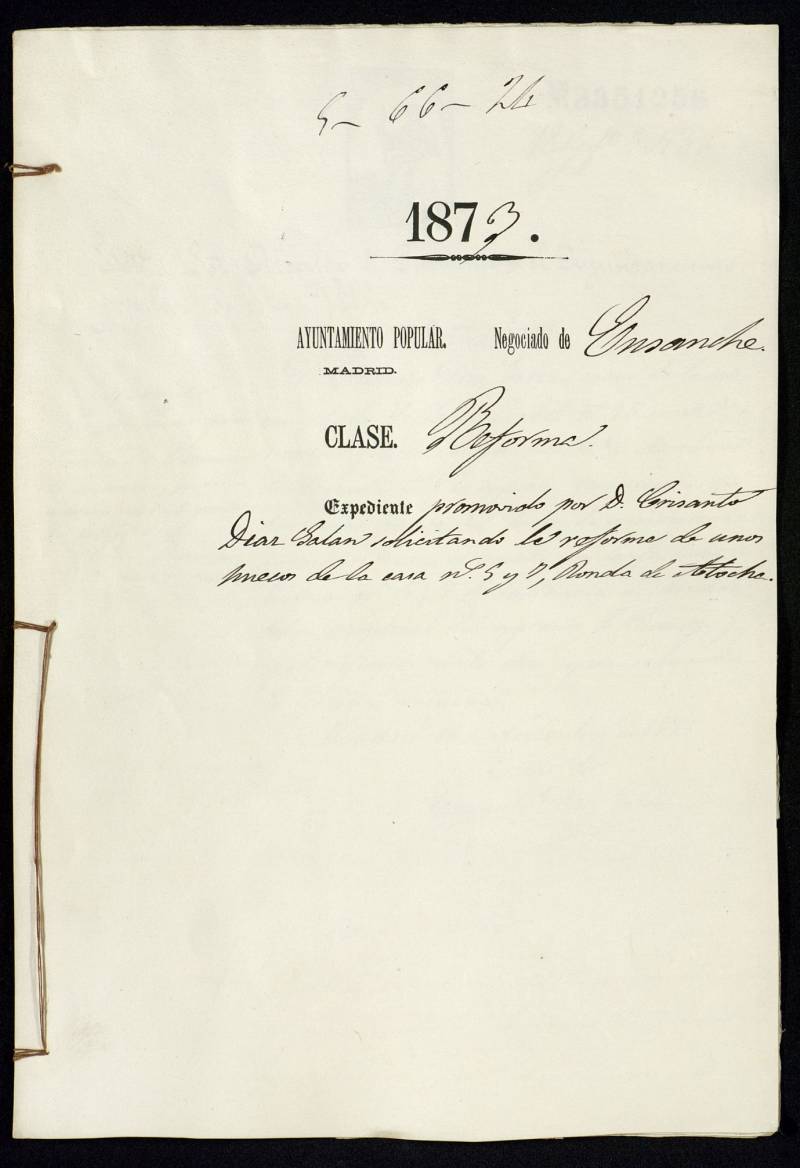 5- 66- 24
1873.
AYUNTAMIENTO POPULAR. Negociado de Ensanche.
MADRID.
CLASE. Reforma.
Expediente promovido por D. Crisanto
Diaz Galan solicitando la reforma de unos
huecos de la casa nº. 5 y 7, Ronda de Atocha.